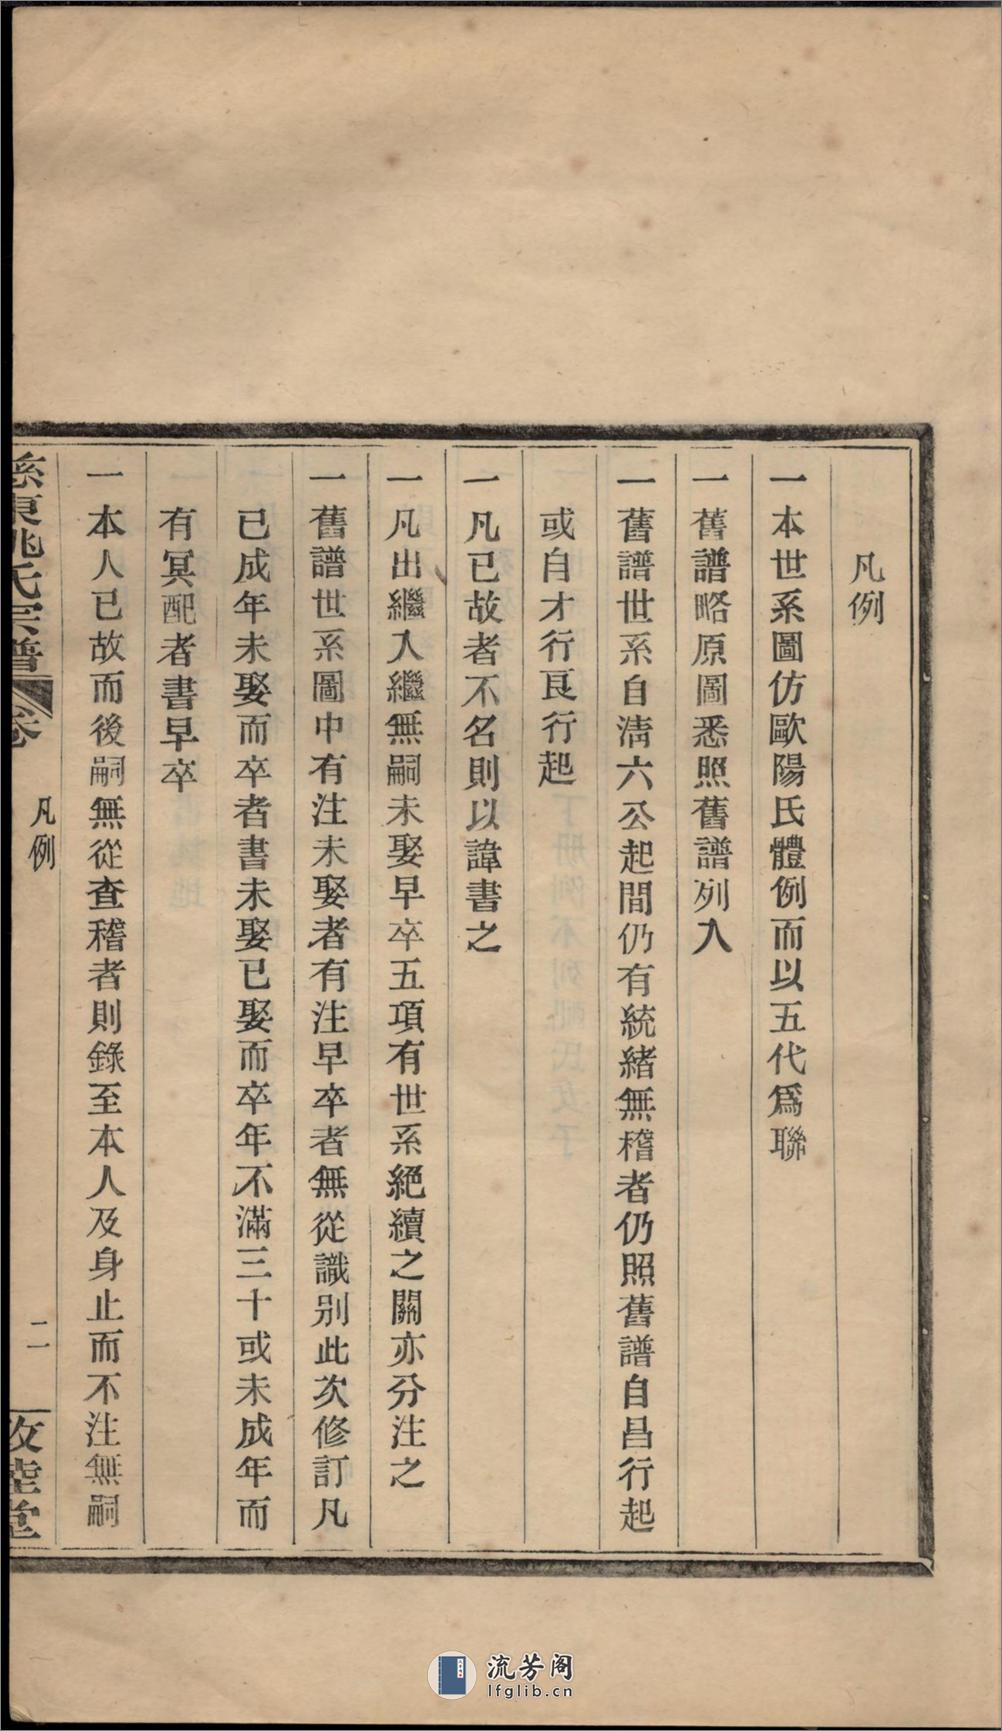 凡例
一本世系圖仿歐陽氏體例而以五代爲聯
一舊譜略原圖悉照舊譜列入
一舊譜世系自淸六公起間仍有統緒無稽者仍照舊譜自昌行起
或自才行艮行起
一凡已故者不名則以諱書之
一凡出繼入繼無嗣未娶早卒五項有世系絕續之關亦分注之
一舊譜世系圖中有注未娶者有注早卒者無從識別此次修訂凡
已成年未娶而卒者書未娶已娶而卒年不滿三十或未成年而
有冥配者書早卒
一本人已故而後嗣無從查稽者則錄至本人及身止而不注無嗣
東姚氏宗譜 卷 凡例 二 睦堂
流芳阁
lfglib.cn